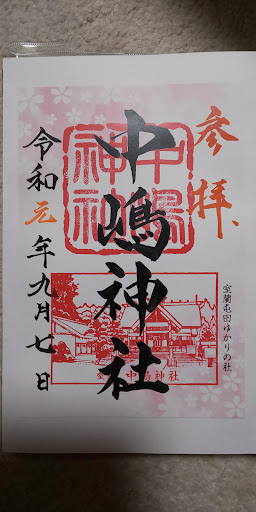 参拝
室蘭屯田ゆかりの社
中嶋神社
中嶋神社
中嶋神社
令和元年九月七日